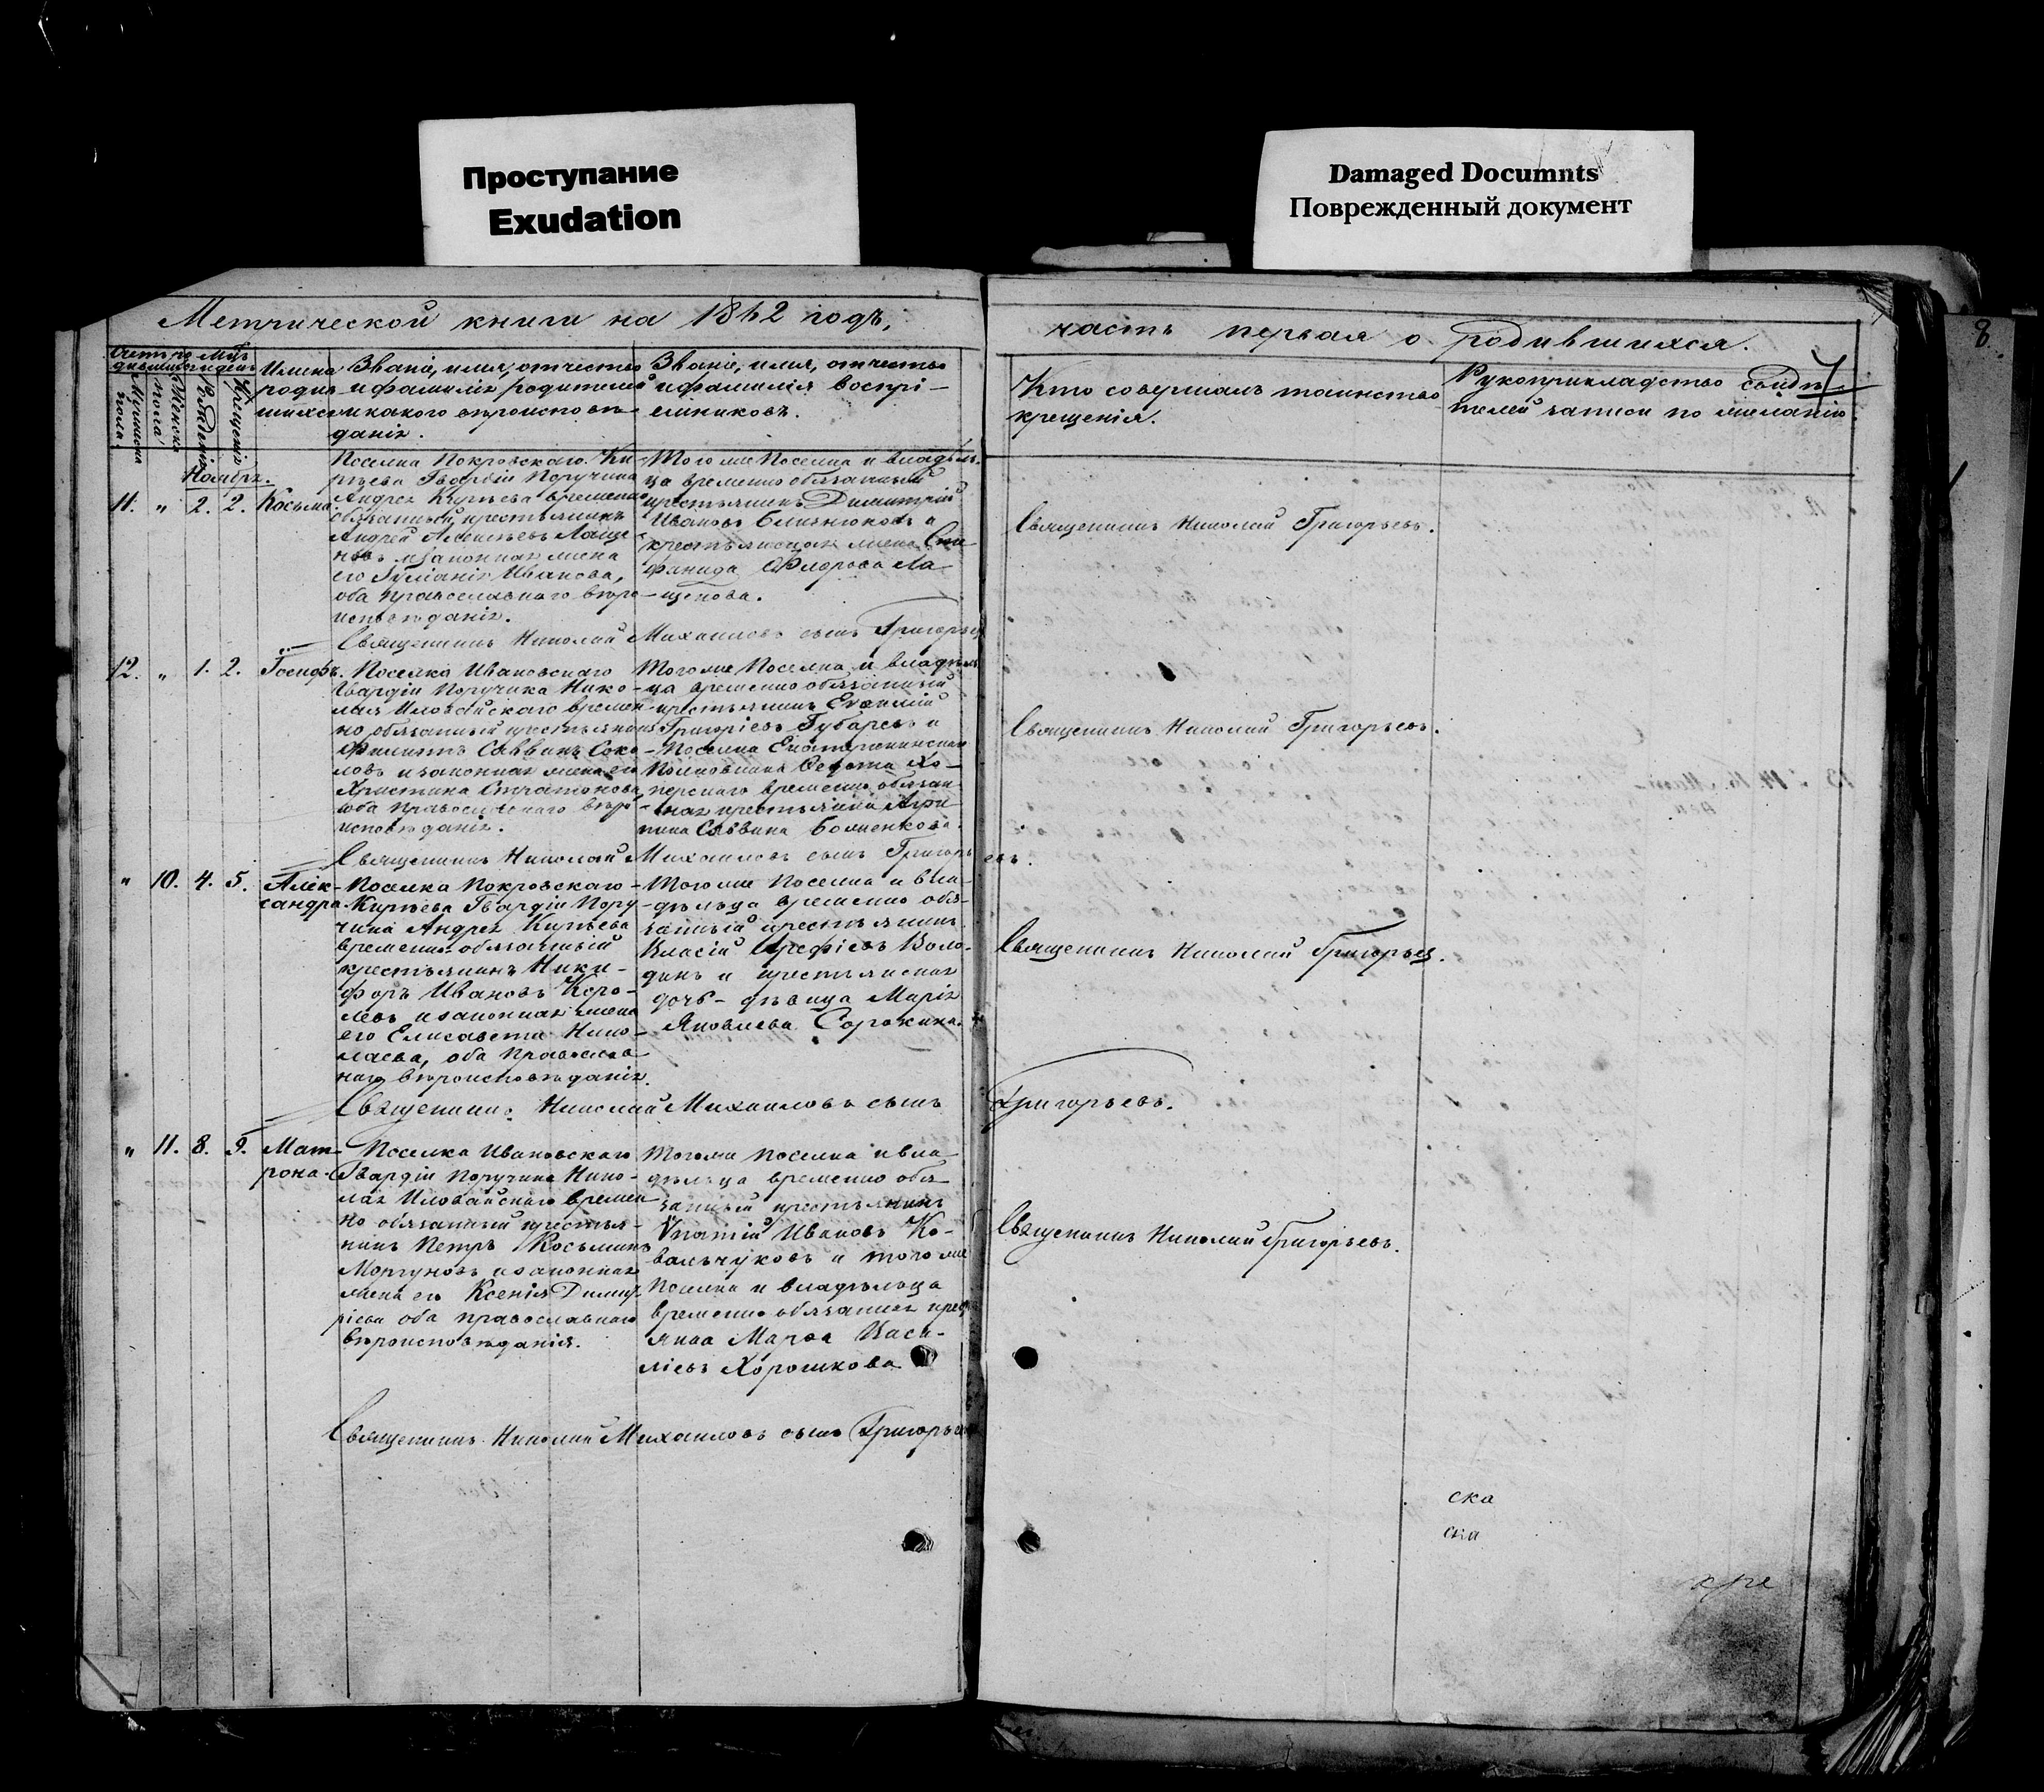 Проступание
Exudation
Damaged Documnts
Поврежденный документ
8.
Метрической книги на 1862 годъ,
часть первая о родившихся.
Имена родив шихся
Званіе, имя, отчество
и фамилія родителей
и какого вѣроисповѣ
данія.
Званіе, имя, отчество
и фамилія воспрі-
емниковъ.
Кто совершалъ таинство
крещенія.
Рукоприкладство свидѣ
телей записи по желанію.
Мужеска пола.
Женска пола
Рожденія
Крещенія
Ноябрь.
11. " 2. 2. Косьма.
Поселка Покровскаго Ки
рѣева Гвардіи Поручика
Андрея Кирѣева временно
обязанный крестьянинъ
Андрей Лаще
новъ и законная жена
его Иванова,
оба православнаго вѣро
исповѣданія.
Тогоже Поселка и владѣль
ца временно обязанный
крестьянинъ Димитрій
Ивановъ Близнюковъ и
крестьянская жена Сте
фанида Ѳедорова Ла
щенова.
Священникъ Николай Григорьевъ.
Священникъ Николай Михаиловъ сынъ Григорьев
12. " 1. 2. Іосифъ.
Поселка Ивановскаго
Гвардіи Поручика Нико-
лая Иловайскаго времен
но обязанный крестьянинъ
Филиппъ Саввинъ Соко
ловъ и законная жена его
Христина
оба православнаго вѣро
исповѣданія.
Тогоже Поселка и владѣль
ца временно обязанный
крестьянинъ Евѳимій
Григоріевъ Губаревъ и
Поселка Екатерининскаго
Полковника Ѳедота Хо-
перскаго временно обязан
ная крестьянка Агри
пина Саввина Боженкова.
Священникъ Николай Григорьевъ.
Священникъ Николай Михаиловъ сынъ Григорьевъ.
" 10. 4. 5. Алек-
сандра.
Поселка Покровскаго
Кирѣева Гвардіи Пору
чика Андрея Кирѣева
временно обязанный
крестьянинъ Ники-
форъ Ивановъ Коро-
левъ и законная жена
его Елисавета Нико
лаева, оба православ
наго вѣроисповѣданія.
Тогоже Поселка и вла-
дѣльца временно обя-
занный крестьянинъ
Власій Арефіевъ Воло-
динъ и крестьянская
дочь-дѣвица Марія
Яковлева Сорокина.
Священникъ Николай Григорьев.
Священникъ Николай Михаиловъ сынъ Григорьевъ.
" 11. 8. 9. Мат-
рона.
Поселка Ивановскаго
Гвардіи Поручика Нико-
лая Иловайскаго времен
но обязанный крестья-
нинъ Петръ Косьминъ
Моргуновъ и законная
жена его Ксенія Димит
ріева оба православнаго
вѣроисповѣданія.
Тогоже поселка и вла
дѣльца временно обя
занный крестьянинъ
Ипатій Ивановъ Ко-
вальчуковъ и тогоже
Поселка и владѣльца
временно обязанная крест
янка Марѳа Васи-
ліевъ Хорошкова
Священникъ Николай Григорьевъ.
Священникъ Николай Михаиловъ сынъ Григорьев
ска
ска